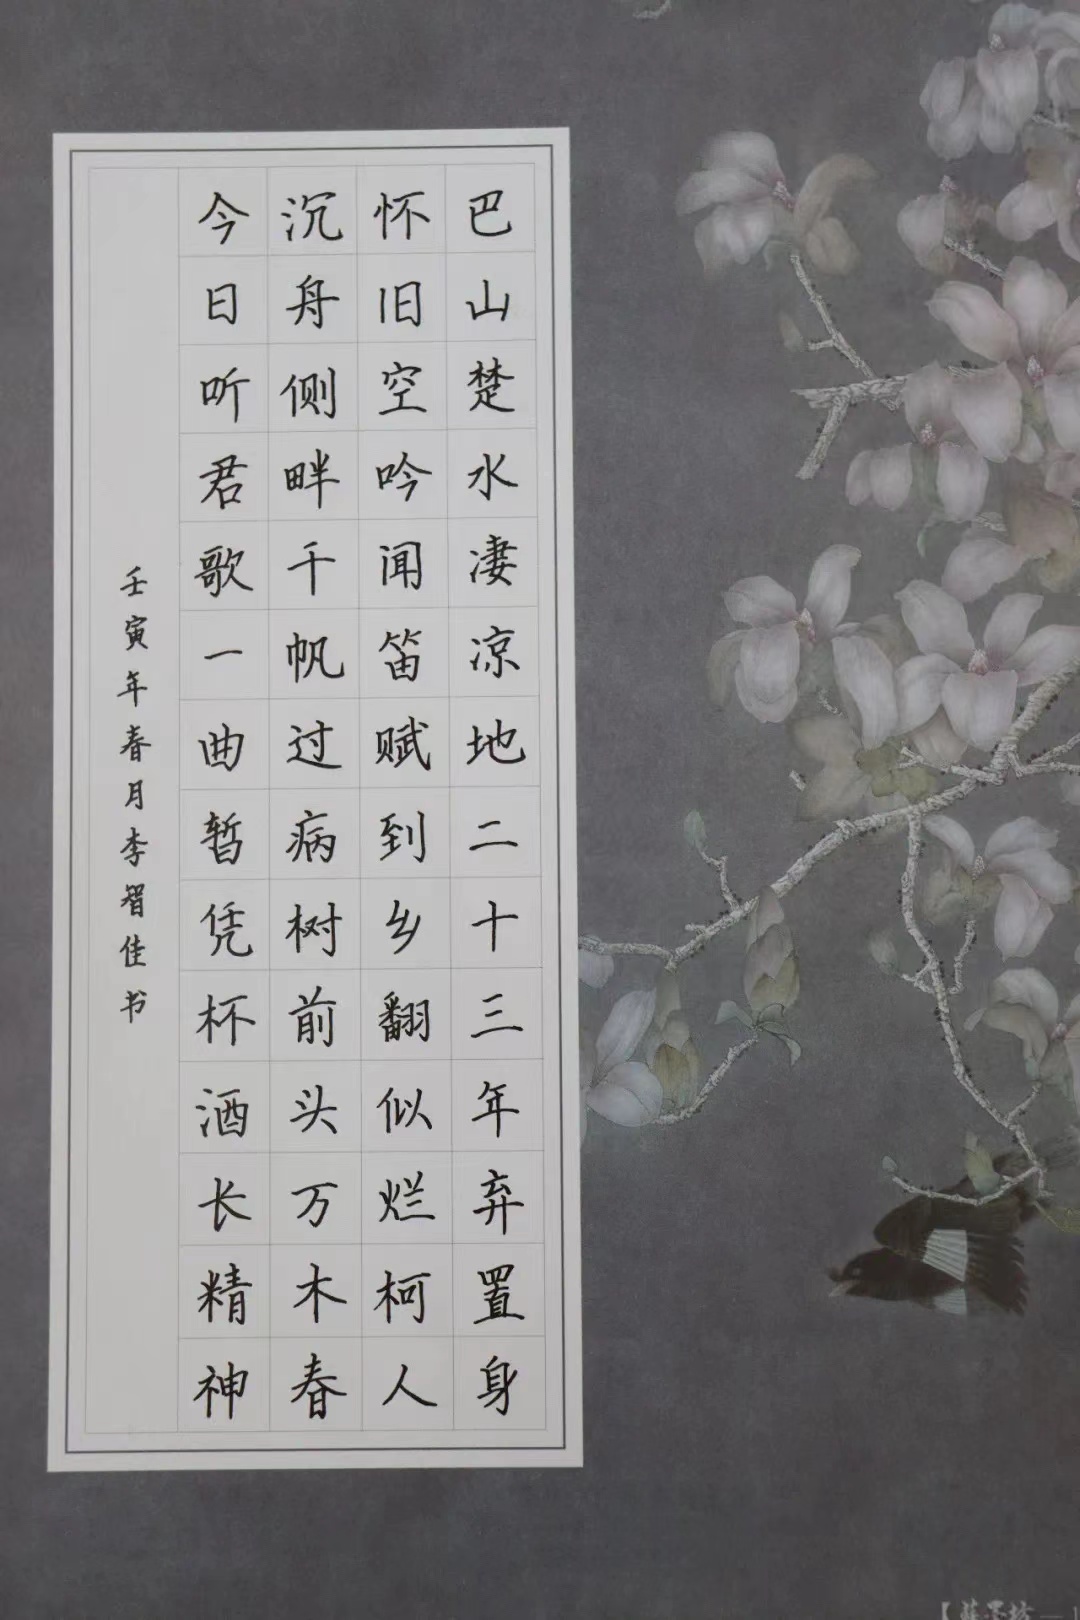 巴山楚水凄凉地二十三年弃置身
怀旧空吟闻笛赋到乡翻似烂柯人
沉舟侧畔千帆过病树前头万木春
今日听君歌一曲暂凭杯酒长精神
壬寅年春月李智佳书